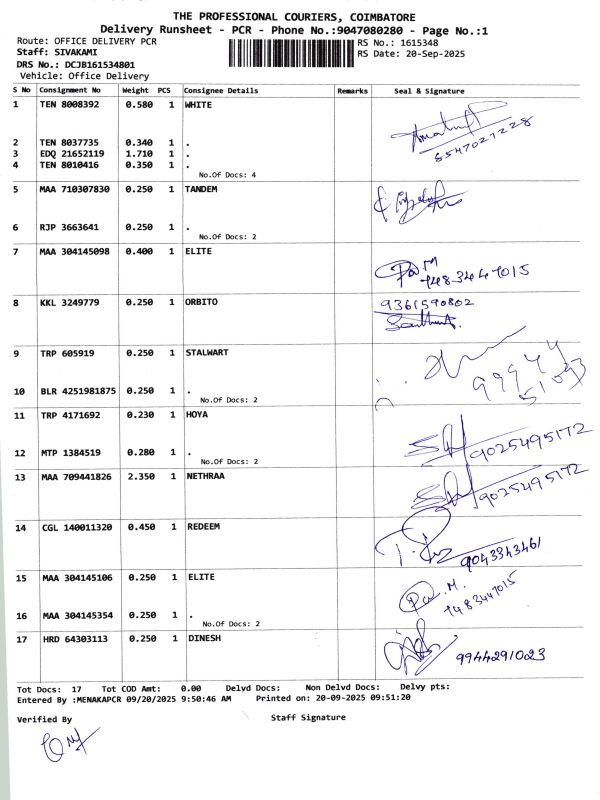 THE PROFESSIONAL COURIERS, COIMBATORE
Delivery Runsheet - PCR - Phone No.:9047080280 - Page No.:1
Route: OFFICE DELIVERY PCR RS No.: 1615348
Staff: SIVAKAMI RS Date: 20-Sep-2025
DRS No.: DCJB161534801
Vehicle: Office Delivery
S No Consignment No Weight PCS Consignee Details Remarks Seal & Signature
1 TEN 8008392 0.580 1 WHITE
2 TEN 8037735 0.340 1 .
8547027228
3 EDQ 21652119 1.710 1 .
4 TEN 8010416 0.350 1 .
No.Of Docs: 4
5 MAA 710307830 0.250 1 TANDEM
6 RJP 3663641 0.250 1 .
No.Of Docs: 2
7 MAA 304145098 0.400 1 ELITE
9483447015
8 KKL 3249779 0.250 1 ORBITO 9361590802
9 TRP 605919 0.250 1 STALWART
99944
10 BLR 4251981875 0.250 1 . 51093
No.Of Docs: 2
11 TRP 4171692 0.230 1 HOYA
9025495172
12 MTP 1384519 0.280 1 .
No.Of Docs: 2
13 MAA 709441826 2.350 1 NETHRAA 9025495172
14 CGL 140011320 0.450 1 REDEEM 9043343461
15 MAA 304145106 0.250 1 ELITE
9483447015
16 MAA 304145354 0.250 1 .
No.Of Docs: 2
17 HRD 64303113 0.250 1 DINESH 9944291023
Tot Docs: 17 Tot COD Amt: 0.00 Delvd Docs: Non Delvd Docs: Delvy pts:
Entered By :MENAKAPCR 09/20/2025 9:50:46 AM Printed on: 20-09-2025 09:51:20
Verified By Staff Signature